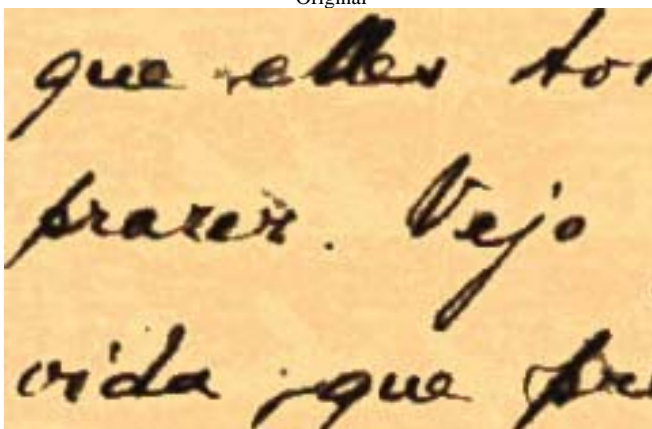 Original
que elles
prazer. Vejo
vida, que